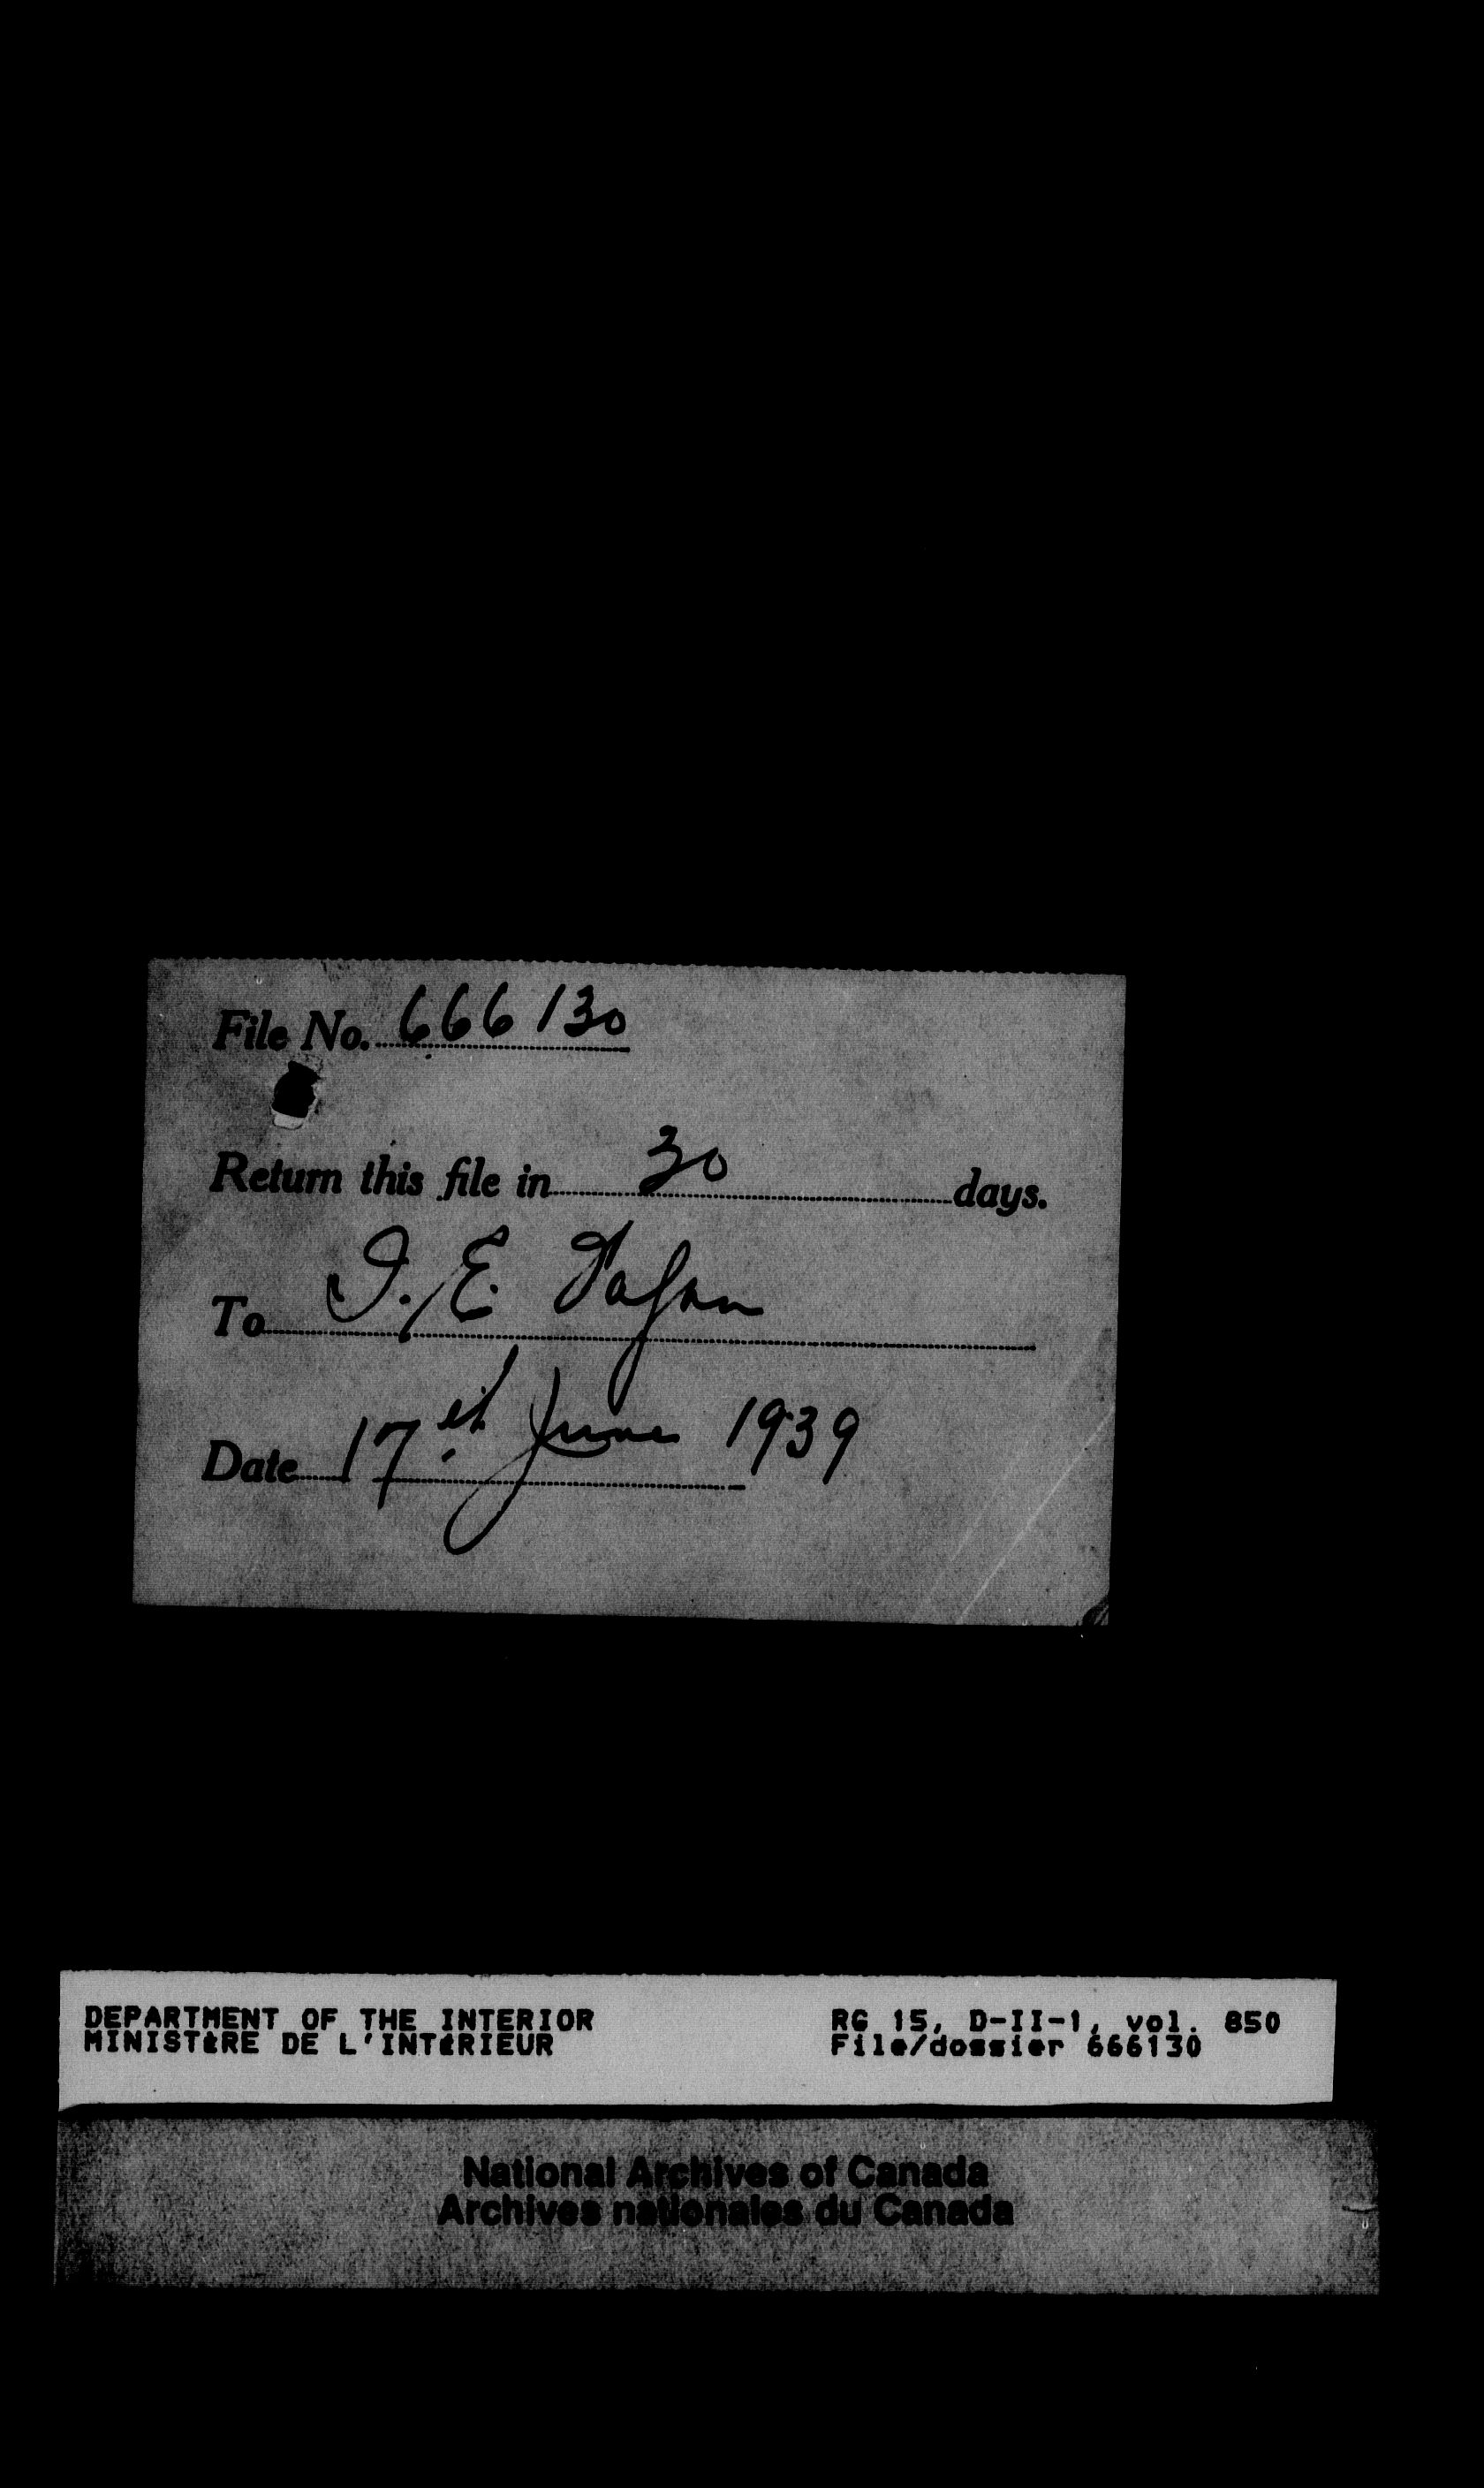 File No. 666130
Return this file in 30 days.
To
Date 17th June 1939
DEPARTMENT OF THE INTERIOR
MINISTÈRE DE L'INTÉRIEUR
RG 15, D-II-1, vol. 850
File/dossier 666130
National Archives of Canada
Archives nationales du Canada